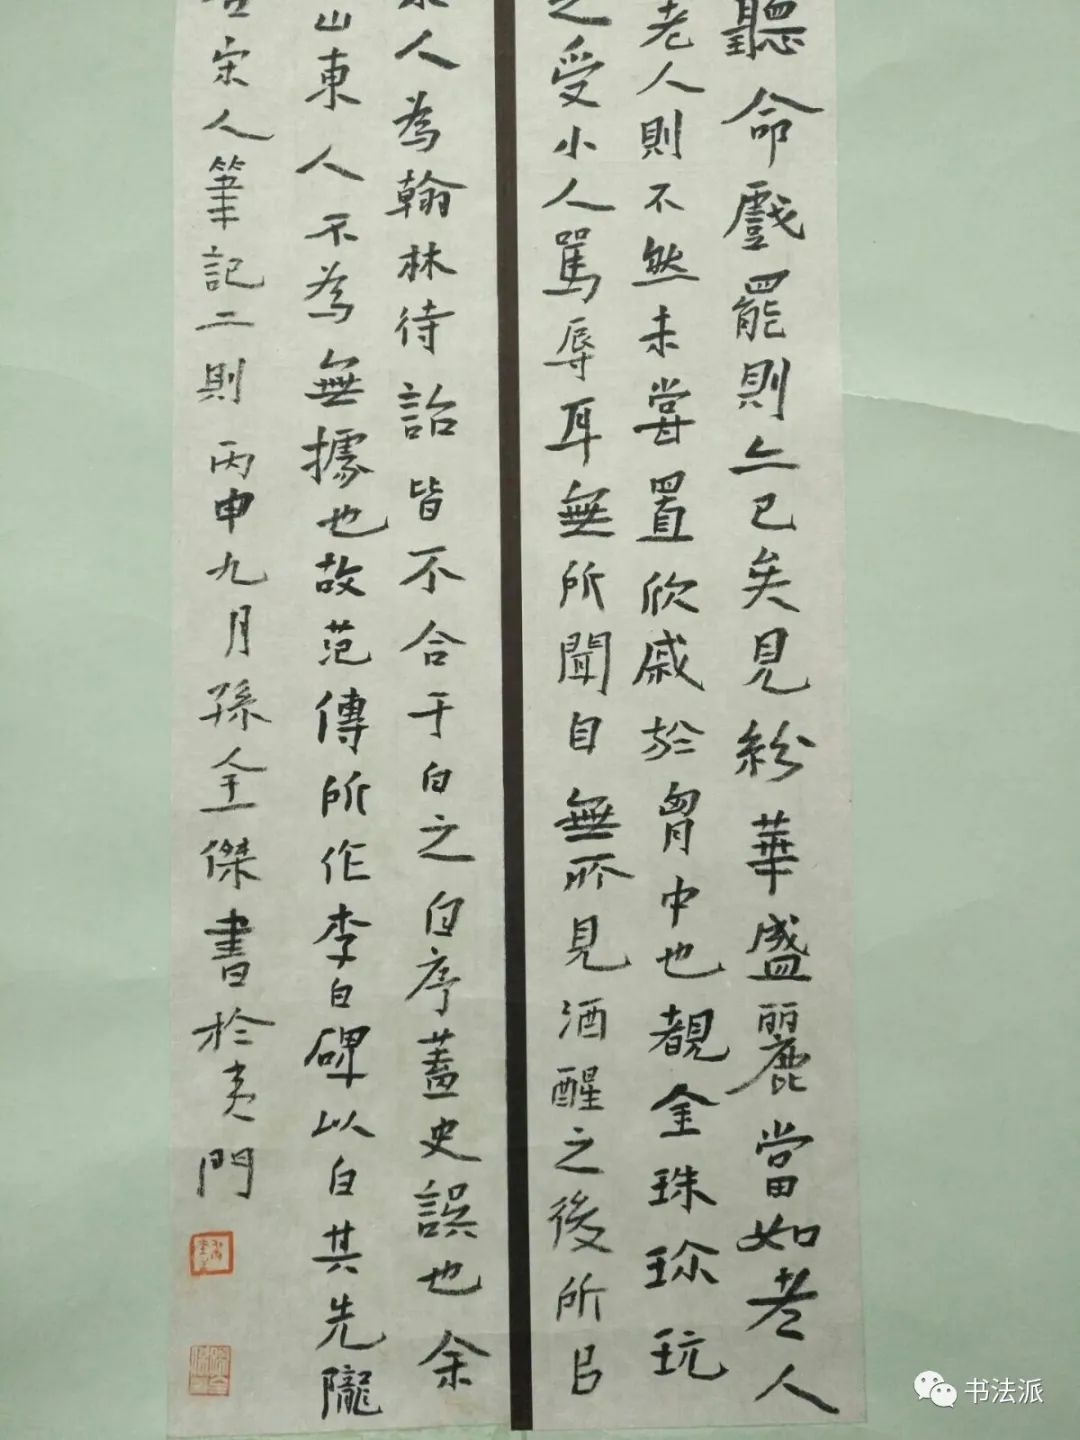 聽命戲罷則亦已矣見紛華盛麗當如老人
老人則不然未嘗置欣戚於胷中也覩金珠珎玩
之受小人罵辱耳無所聞目無所見酒醒之後所以
人為翰林待詔皆不合于白之自序蓋史誤也余
山東人不為無據也故范傳所作李白碑以白其先隴
宋人筆記二則 丙申九月孫全傑書於夷門
书法派